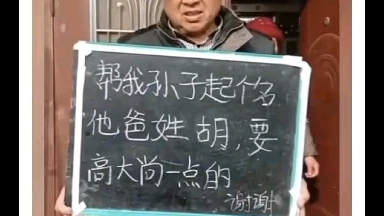 帮我孙子起个名
他爸姓胡,要
高大尚一点的
谢谢